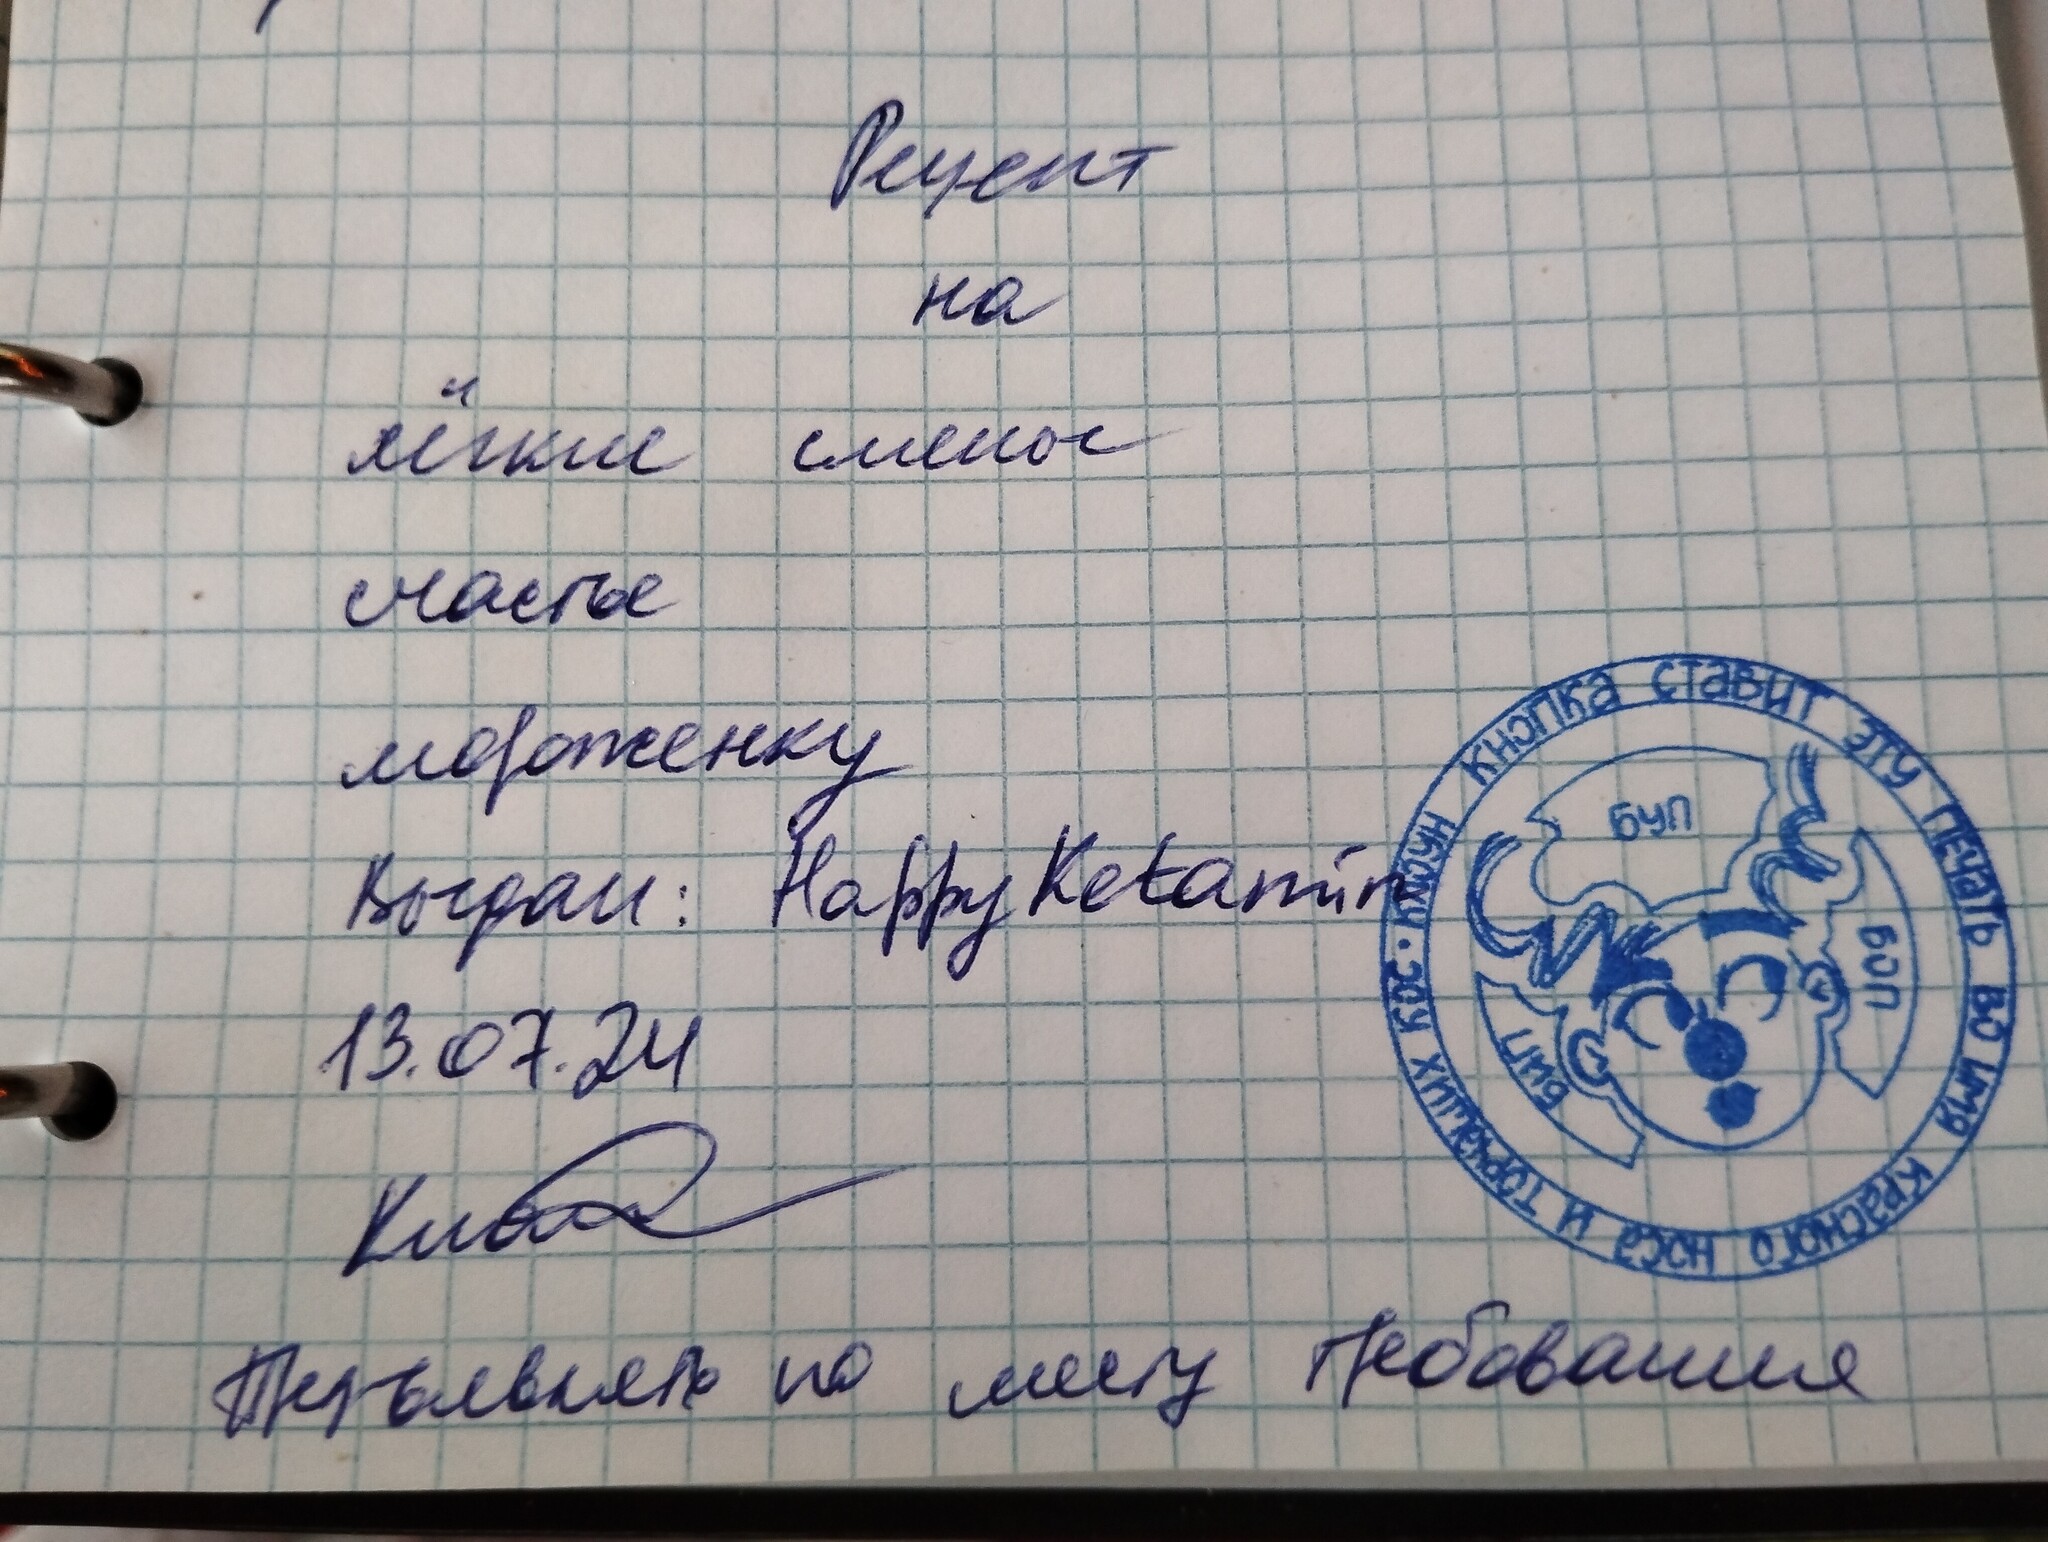 Рецепт
на
лёгкие смены
счастье
мороженку
Выдан: HappyKetamin
13.07.24
Предъявлять по месту требования
КНОПКА СТАВИТ ЭТУ ПЕЧАТЬ ВО ИМЯ КРАСНОГО НОСА И ТОРЧАЩИХ КОС
БУП
БОП
БЫП